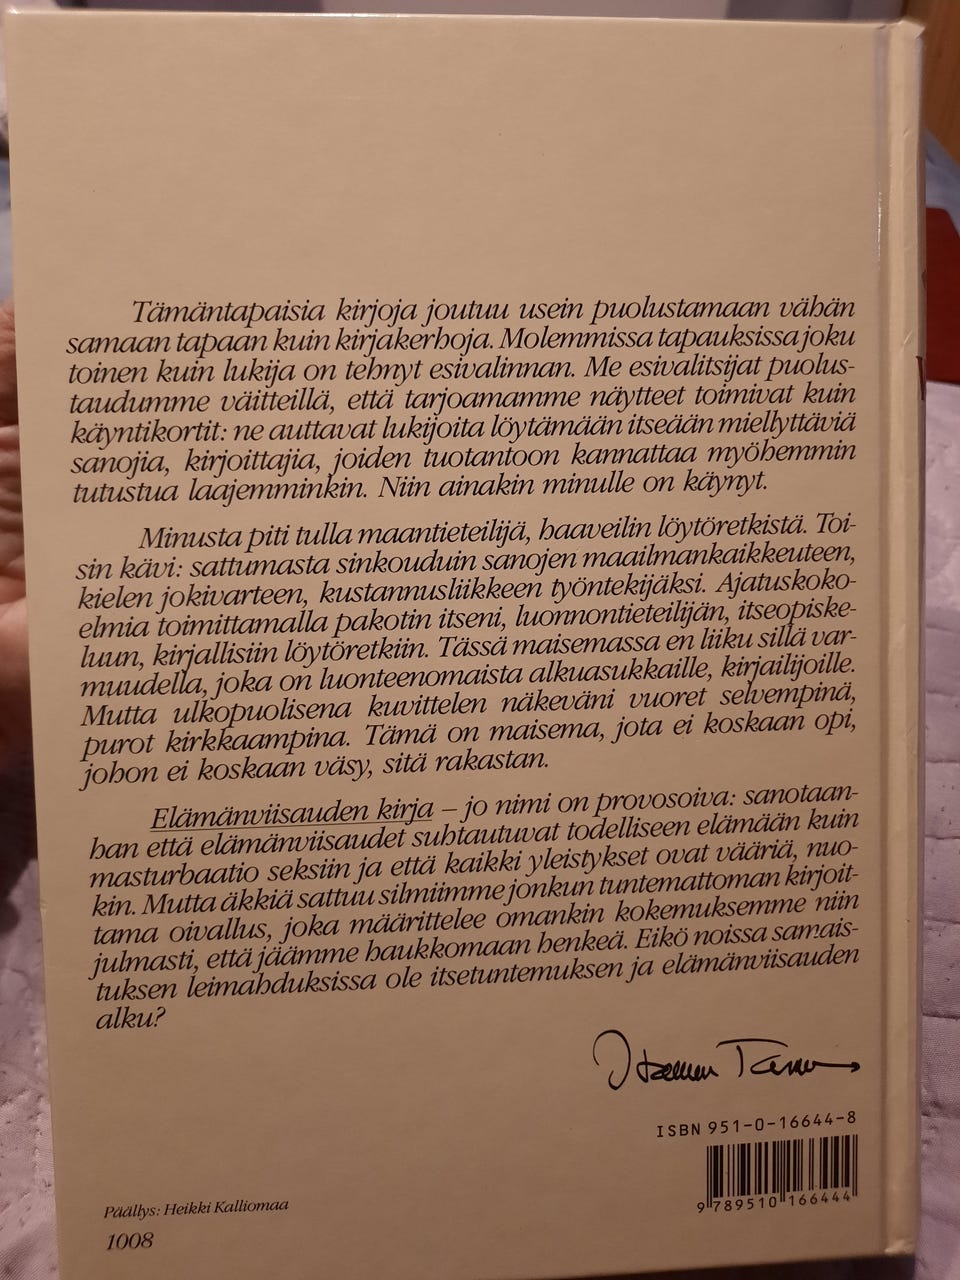 Tämäntapaisia kirjoja joutuu usein puolustamaan vähän
samaan tapaan kuin kirjakerhoja. Molemmissa tapauksissa joku
toinen kuin lukija on tehnyt esivalinnan. Me esivalitsijat puolus-
taudumme väitteillä, että tarjoamamme näytteet toimivat kuin
käyntikortit: ne auttavat lukijoita löytämään itseään miellyttäviä
sanojia, kirjoittajia, joiden tuotantoon kannattaa myöhemmin
tutustua laajemminkin. Niin ainakin minulle on käynyt.
Minusta piti tulla maantieteilijä, haaveilin löytöretkistä. Toi-
sin kävi: sattumasta sinkouduin sanojen maailmankaikkeuteen,
kielen jokivarteen, kustannusliikkeen työntekijäksi. Ajatuskoko-
elmia toimittamalla pakotin itseni, luonnontieteilijän, itseopiske-
luun, kirjallisiin löytöretkiin. Tässä maisemassa en liiku sillä var-
muudella, joka on luonteenomaista alkuasukkaille, kirjailijoille.
Mutta ulkopuolisena kuvittelen näkeväni vuoret selvempinä,
purot kirkkaampina. Tämä on maisema, jota ei koskaan opi,
johon ei koskaan väsy, sitä rakastan.
Elämänviisauden kirja – jo nimi on provosoiva: sanotaan-
han että elämänviisaudet suhtautuvat todelliseen elämään kuin
masturbaatio seksiin ja että kaikki yleistykset ovat vääriä, nuo-
kin. Mutta äkkiä sattuu silmiimme jonkun tuntemattoman kirjoit-
tama oivallus, joka määrittelee omankin kokemuksemme niin
julmasti, että jäämme haukkomaan henkeä. Eikö noissa samais-
tuksen leimahduksissa ole itsetuntemuksen ja elämänviisauden
alku?
ISBN 951-0-16644-8
9 789510 166444
Päällys: Heikki Kalliomaa
1008